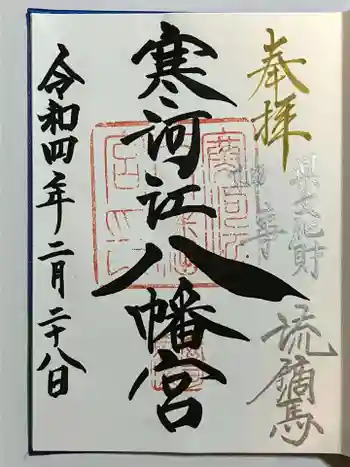 奉拝
県文化財
流鏑馬
寒河江八幡宮
令和四年二月二十八日